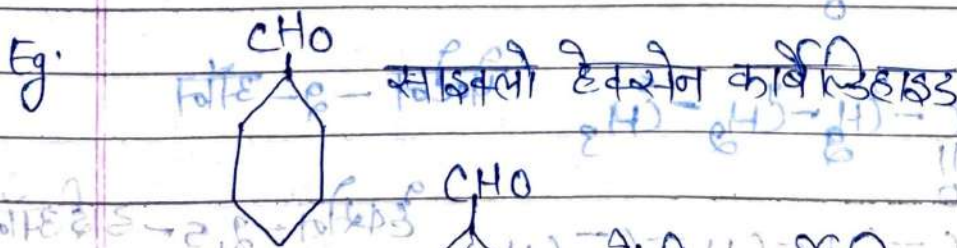 Eg.
CHO
साइक्लो हेक्सेन कार्बेल्डिहाइड
CHO